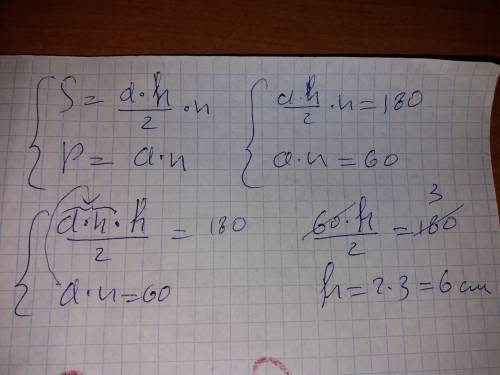 S = a·h/2 · n
P = a·n
a·h/2 · n = 180
a·n = 60
a·n·h/2 = 180
a·n = 60
60·h/2 = 180 3
h = 2·3 = 6 см